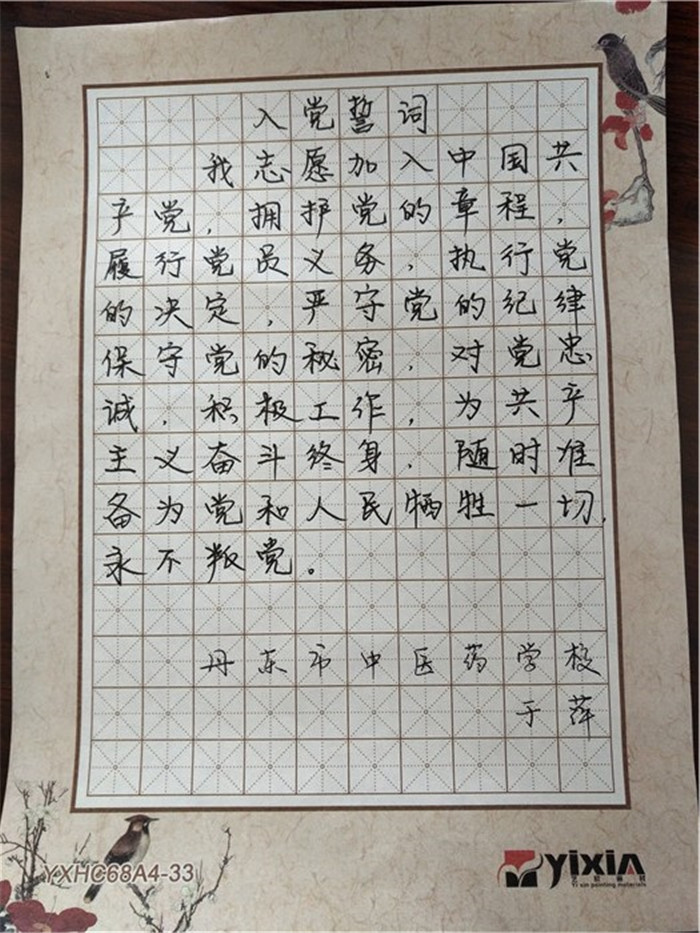 入党誓词
我志愿加入中国共
产党，拥护党的章程，
履行党员义务，执行党
的决定，严守党的纪律
保守党的秘密，对党忠
诚，积极工作，为共产
主义奋斗终身，随时准
备为党和人民牺牲一切，
永不叛党。
丹东市中医药学校
于萍
YXHC68A4-33
YIXIN
Yi xin painting materials